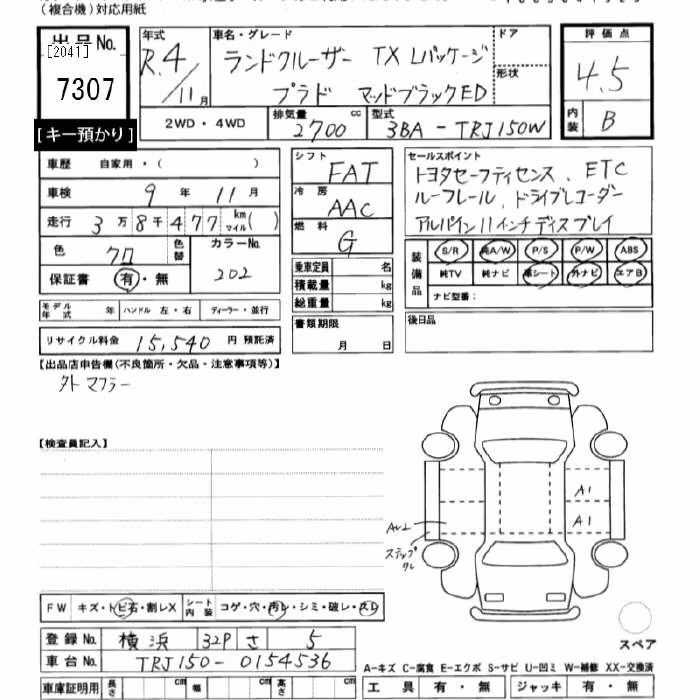 (複合機)対応用紙
出品No.
[2041]
7307
[キー預かり]
年式 R.4/11月
車名・グレード ランドクルーザー TX Lパッケージ
プラド マットブラックED
ドア
形状
評価点 4.5
内装 B
2WD・4WD
排気量 2700 cc
型式 3BA-TRJ150W
車歴 自家用・( )
車検 9年 11月
走行 3万8千477 km マイル( )
色 クロ 色替
カラーNo. 202
保証書 有・無
モデル年式 年 ハンドル 左・右 ディーラー・並行
リサイクル料金 15,540 円 預託済
シフト FAT
冷房 AAC
燃料 G
乗車定員 名
積載量 kg
総重量 kg
書類期限
月 日
セールスポイント
トヨタセーフティセンス、ETC
ルーフレール、ドライブレコーダー
アルパイン11インチディスプレイ
装備品 S/R 純A/W P/S P/W ABS
純TV 純ナビ 革シート 外ナビ エアB
ナビ型番:
後日品
【出品店申告欄(不良箇所・欠品・注意事項等)】
外 マフラー
【検査員記入】
A1
A1
ステップ
FW キズ・トビ石・割レX シート内装 コゲ・穴・汚レ・シミ・破レ・スレ
登録No. 横浜 32P さ 5
車台No. TRJ150-0154536
車庫証明用 長さ cm 幅 cm 高さ cm
スペア
A-キズ C-腐食 E-エクボ S-サビ U-凹ミ W-補修 XX-交換済
工具 有・無 ジャッキ 有・無